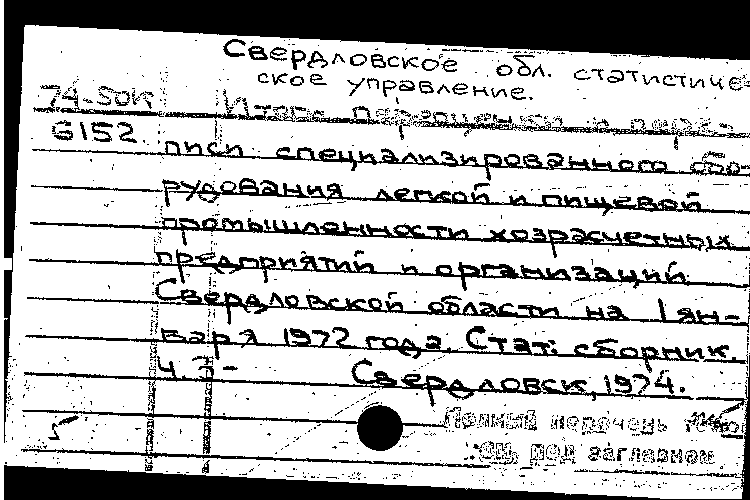 Свердловское обл. статистиче-
ское управление.
74-50К Итоги переоценки и пере-
6152 писи специализированного обо-
рудования легкой и пищевой
промышленности хозрасчетных
предприятий и организаций
Свердловской области на 1 ян-
варя 1972 года. Стат. сборник.
Ч. 3-
Свердловск, 1974.
Полный перечень
см. под заглавием